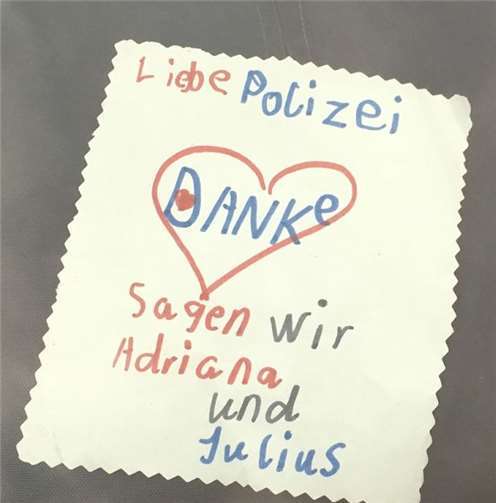 Liebe Polizei
DANKe
Sagen wir
Adriana
und
Julius